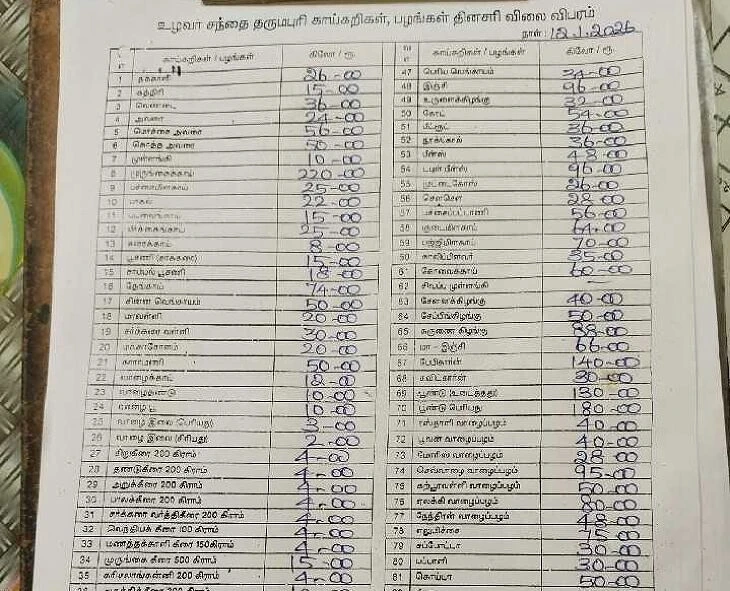 உழவர் சந்தை தருமபுரி காய்கறிகள், பழங்கள் தினசரி விலை விபரம்
நாள் : 12.1.2026
காய்கறிகள் / பழங்கள் கிலோ / ரூ.
1 தக்காளி 26-00
2 கத்திரி 15-00
3 வெண்டை 36-00
4 அவரை 24-00
5 மொச்சை அவரை 56-00
6 கொத்த அவரை 50-00
7 முள்ளங்கி 10-00
8 முருங்கைக்காய் 220-00
9 பச்சைமிளகாய் 25-00
10 பாகல் 22-00
11 புடலங்காய் 15-00
12 பீர்க்கங்காய் 25-00
13 சுரைக்காய் 8-00
14 பூசணி (சர்க்கரை) 15-00
15 சாம்பல் பூசணி 18-00
16 தேங்காய் 74-00
17 சின்ன வெங்காயம் 50-00
18 மரவள்ளி 20-00
19 சர்க்கரை வள்ளி 30-00
20 மக்காசோளம் 20-00
21 காராமணி 50-00
22 வாழைக்காய் 12-00
23 வாழைதண்டு 10-00
24 10-00
25 வாழை இலை (பெரியது) 3-00
26 வாழை இலை (சிறியது) 2-00
27 சிறுகீரை 200 கிராம் 4-00
28 தண்டுகீரை 200 கிராம் 4-00
29 அறுக்கீரை 200 கிராம் 4-00
30 பாலக்கீரை 200 கிராம் 4-00
31 சர்க்கரை வர்த்திகீரை 200 கிராம் 4-00
32 வெந்தியக் கீரை 100 கிராம் 4-00
33 மணத்தக்காளி கீரை 150கிராம் 4-00
34 முருங்கை கீரை 500 கிராம் 15-00
35 கரிசலாங்கன்னி 200 கிராம் 4-00
காய்கறிகள் / பழங்கள் கிலோ / ரூ.
47 பெரிய வெங்காயம் 34-00
48 இஞ்சி 96-00
49 உருளைக்கிழங்கு 32-00
50 கேரட் 54-00
51 பீட்ரூட் 36-00
52 நூக்கோல் 36-00
53 பீன்ஸ் 48-00
54 டபுள் பீன்ஸ் 96-00
55 முட்டைகோஸ் 26-00
56 சௌசௌ 28-00
57 பச்சைப்பட்டாணி 56-00
58 குடைமிளகாய் 64-00
59 பஜ்ஜிமிளகாய் 70-00
60 காலிப்பிளவர் 35-00
61 கோவைக்காய் 60-00
62 சிவப்பு முள்ளங்கி
63 சேனைக்கிழங்கு 40-00
64 சேப்பங்கிழங்கு 50-00
65 கருணை கிழங்கு 88-00
66 மா - இஞ்சி 66-00
67 பேபிகார்ன் 140-00
68 சுவிட்கார்ன் 30-00
69 பூண்டு (உடைத்தது) 130-00
70 பூண்டு பெரியது 180-00
71 ரஸ்தாளி வாழைப்பழம் 40-00
72 பூவன் வாழைப்பழம் 40-00
73 மோரிஸ் வாழைப்பழம் 28-00
74 செவ்வாழை வாழைப்பழம் 95-00
75 கற்பூரவள்ளி வாழைப்பழம் 50-00
76 ஏலக்கி வாழைப்பழம் 80-00
77 நேந்திரன் வாழைப்பழம் 48-00
78 எலுமிச்சை 75-00
79 சப்போட்டா 30-00
80 பப்பாளி 30-00
81 கொய்யா 50-00